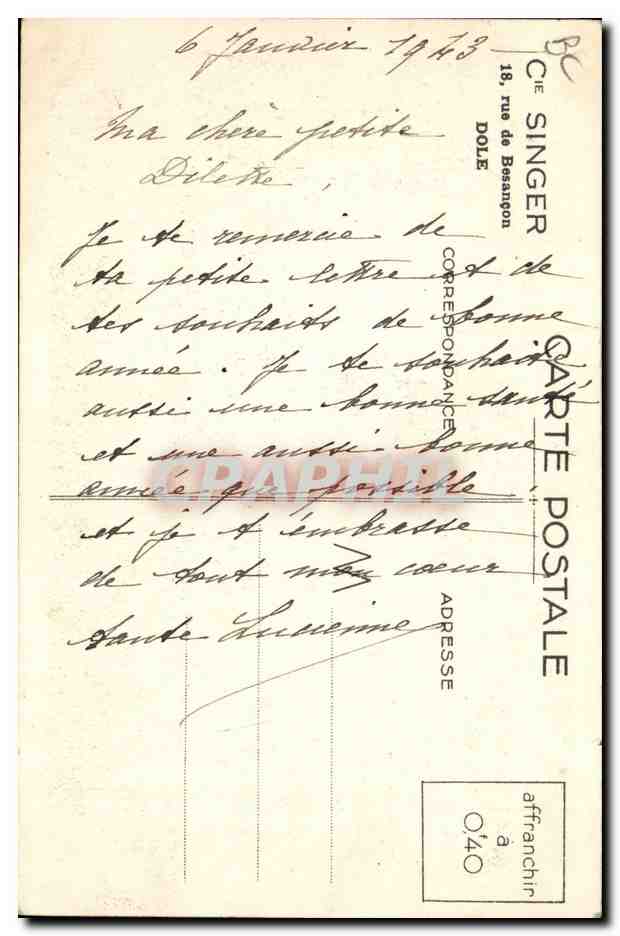 6 Janvier 1943
BC
Ma chère petite
Dilette,
Je te remercie de
ta petite lettre et de
tes souhaits de bonne
année. Je te souhaite
aussi une bonne santé
et une aussi bonne
année que possible.
et je t'embrasse
de tout mon coeur
tante Lucienne
Cie SINGER
18, rue de Besançon
DOLE
CARTE POSTALE
CORRESPONDANCE
ADRESSE
affranchir
à
0'40
CPAPHIL